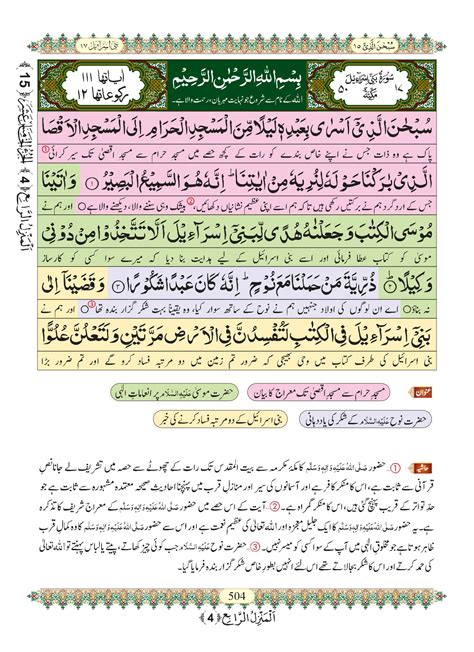 سُبْحٰنَ الَّذِیْۤ ۱۵
بَنِیْۤ اِسْرَآءِیْل ۱۷
سُوْرَۃُ بَنِیْۤ اِسْرَآءِیْلَ مَکِّیَّۃٌ
۱۷
۵۰
بِسْمِ اللہِ الرَّحْمٰنِ الرَّحِیْمِ
اللہ کے نام سے شروع جو نہایت مہربان، رحمت والا ہے۔
اٰیاتھا ۱۱۱
رکوعاتھا ۱۲
سُبْحٰنَ الَّذِیْۤ اَسْرٰى بِعَبْدِهٖ لَیْلًا مِّنَ الْمَسْجِدِ الْحَرَامِ اِلَى الْمَسْجِدِ الْاَقْصَا
پاک ہے وہ ذات جس نے اپنے خاص بندے کو رات کے کچھ حصے میں مسجد حرام سے مسجد اقصیٰ تک سیر کرائی ①
الَّذِیْ بٰرَكْنَا حَوْلَهٗ لِنُرِیَهٗ مِنْ اٰیٰتِنَاؕ اِنَّهٗ هُوَ السَّمِیْعُ الْبَصِیْرُ ﴿۱﴾ وَ اٰتَیْنَا
جس کے اردگرد ہم نے برکتیں رکھی ہیں تاکہ ہم اسے اپنی عظیم نشانیاں دکھائیں، ② بیشک وہی سننے والا، دیکھنے والا ہے ○ اور ہم نے
مُوْسَى الْكِتٰبَ وَ جَعَلْنٰهُ هُدًى لِّبَنِیْۤ اِسْرَآءِیْلَ اَلَّا تَتَّخِذُوْا مِنْ دُوْنِیْ
موسیٰ کو کتاب عطا فرمائی اور اسے بنی اسرائیل کے لیے ہدایت بنا دیا کہ میرے سوا کسی کو کارساز
وَكِیْلًاؕ ﴿۲﴾ ذُرِّیَّةَ مَنْ حَمَلْنَا مَعَ نُوْحٍؕ اِنَّهٗ كَانَ عَبْدًا شَكُوْرًا ﴿۳﴾ وَ قَضَیْنَاۤ اِلٰى
نہ بناؤ ○ اے ان لوگوں کی اولاد جنہیں ہم نے نوح کے ساتھ سوار کیا، وہ یقیناً بہت شکر گزار بندہ تھا ③○ اور ہم نے
بَنِیْۤ اِسْرَآءِیْلَ فِی الْكِتٰبِ لَتُفْسِدُنَّ فِی الْاَرْضِ مَرَّتَیْنِ وَ لَتَعْلُنَّ عُلُوًّا
بنی اسرائیل کی طرف کتاب میں وحی بھیجی کہ ضرور تم زمین میں دو مرتبہ فساد کرو گے اور تم ضرور بڑا
عنوان
مسجدِ حرام سے مسجدِ اقصیٰ تک معراج کا بیان
حضرت موسیٰ علیہ السلام پر انعاماتِ الٰہی
حضرت نوح علیہ السلام کے شکر کی یاددہانی
بنی اسرائیل کے دو مرتبہ فساد کرنے کی خبر
حاشیہ ①... حضور صلی اللہ علیہ والہ وسلم کا مکۂ مکرمہ سے بیت المقدس تک رات کے چھوٹے سے حصہ میں تشریف لے جانا نصِ
قرآنی سے ثابت ہے، اس کا منکر کافر ہے اور آسمانوں کی سیر اور منازلِ قرب میں پہنچنا احادیثِ صحیحہ معتمدہ مشہورہ سے ثابت ہے جو
حدِ تواتر کے قریب پہنچ گئی ہیں، اس کا منکر گمراہ ہے۔ ②... آیت کے اس حصے میں حضور صلی اللہ علیہ والہ وسلم کے معراج شریف کا تذکرہ
ہے۔ یہ حضور صلی اللہ علیہ والہ وسلم کا ایک جلیل معجزہ اور اللہ تعالیٰ کی عظیم نعمت ہے اور اس سے حضور صلی اللہ علیہ والہ وسلم کا وہ کمالِ قرب
ظاہر ہوتا ہے جو مخلوقِ الٰہی میں آپ کے سوا کسی کو میسر نہیں۔ ③... حضرت نوح علیہ السلام جب کوئی چیز کھاتے، پیتے یا لباس پہنتے تو اللہ تعالیٰ
کی حمد کرتے اور اس کا شکر بجا لاتے تھے اس لئے انہیں بطورِ خاص شکر گزار بندہ فرمایا گیا۔
504
اَلْمَنْزِلُ الرَّابِعُ ﴿4﴾
15
اَلْمَنْزِلُ الرَّابِعُ ﴿4﴾